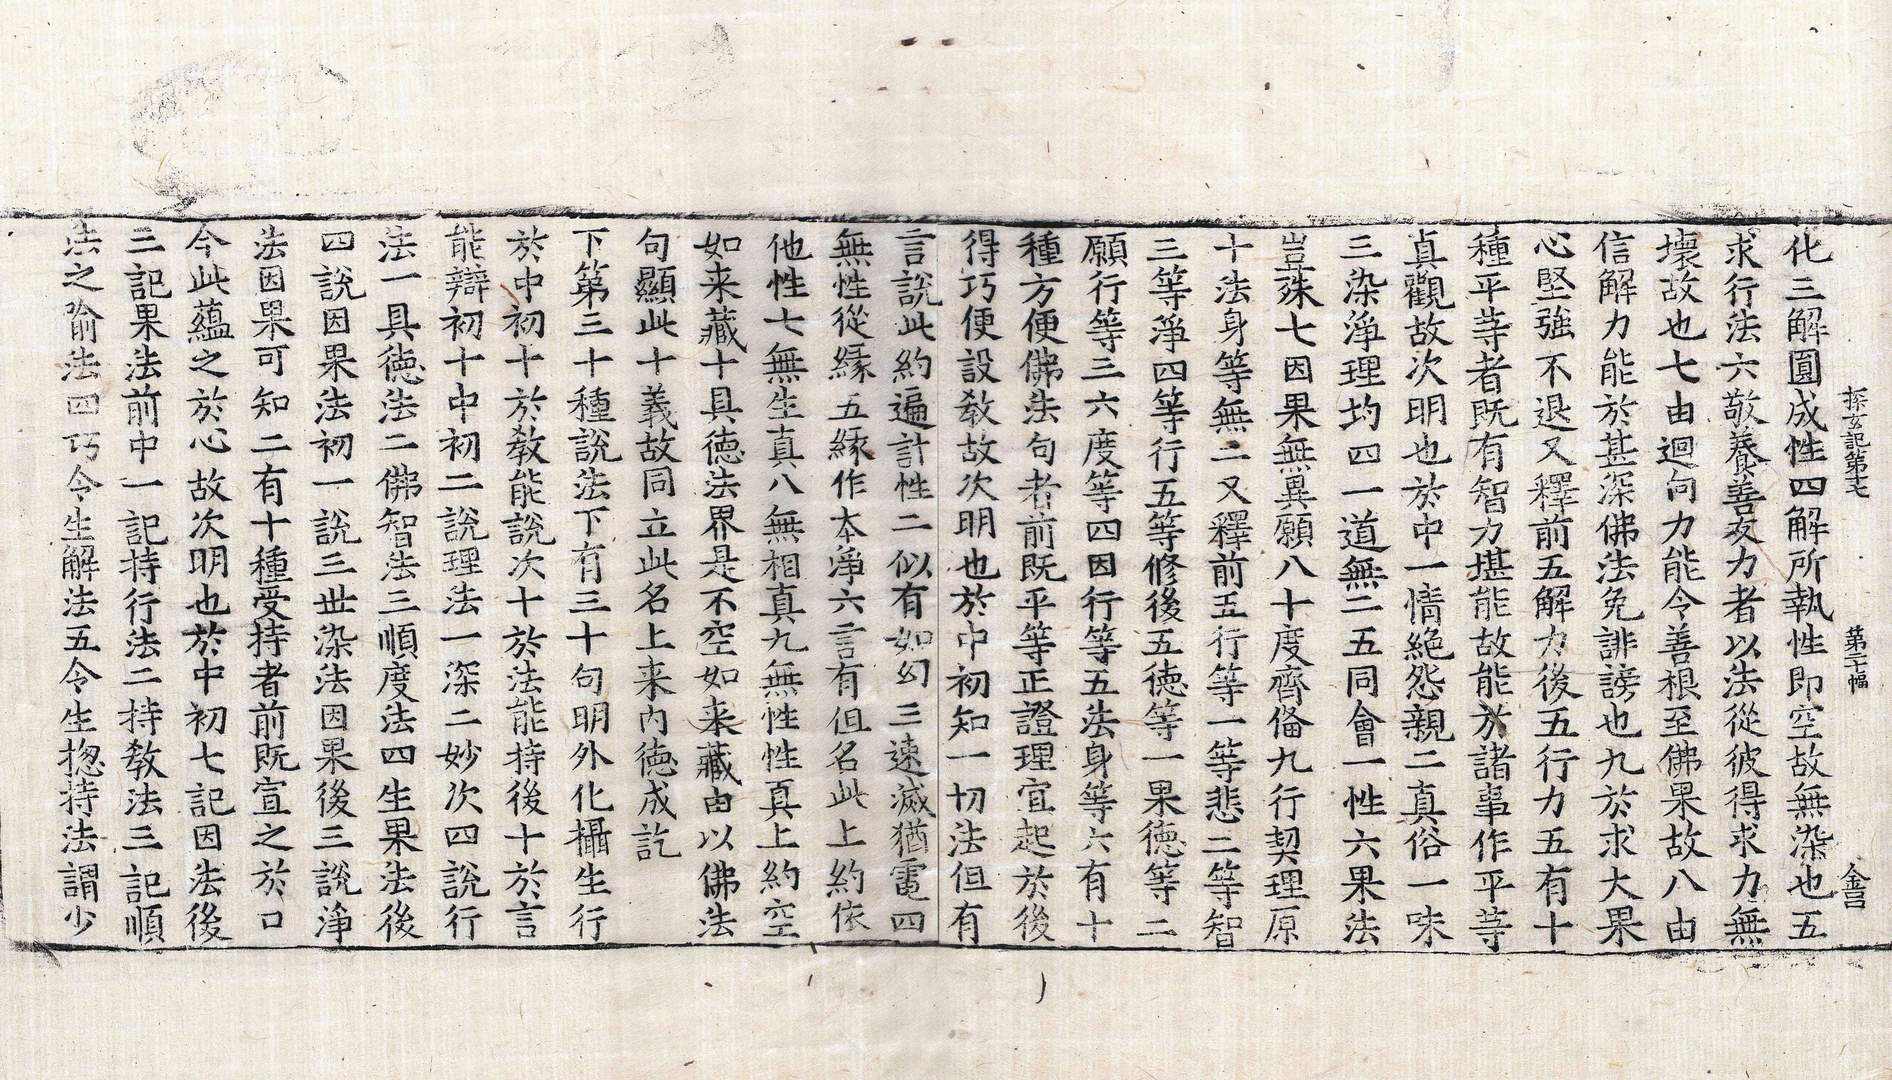 探玄記第十七　第二十幅　含吕
化三解圓成性四解所執性即空故無染也五
求行法六敬養善友力者以法從彼得求力無
壞故也七由迴向力能令善根至佛果故八由
信解力能於甚深佛法免誹謗也九於求大果
心堅強不退又釋前五解力後五行力五有十
種平等者既有智力堪能故能於諸事作平等
真觀故次明也於中一情絶怨親二真俗一味
三染淨理均四一道無二五同會一性六果法
豈殊七因果無異願八十度齊俻九行契理原
十法身等無二又釋前五行等一等悲二等智
三等淨四等行五等修後五德等一果德等二
願行等三六度等四因行等五法身等六有十
種方便佛法句者前既平等正證理宜起於後
得巧便設教故次明也於中初知一切法但有
言說此約遍計性二似有如幻三速滅猶電四
無性從緣五緣作本淨六言有但名此上約依
他性七無生真八無相真九無性性真上約空
如来藏十具德法界是不空如来藏由以佛法
句顯此十義故同立此名上来内德成訖
下第三十種說法下有三十句明外化攝生行
於中初十於教能說次十於法能持後十於言
能辯初十中初二說理法一深二妙次四說行
法一具德法二佛智法三順度法四生果法後
四說因果法初一說三世染法因果後三說淨
法因果可知二有十種受持者前既宣之於口
今此蘊之於心故次明也於中初七記因法後
三記果法前中一記持行法二持教法三記順
法之喻法四巧令生解法五令生揔持法謂少